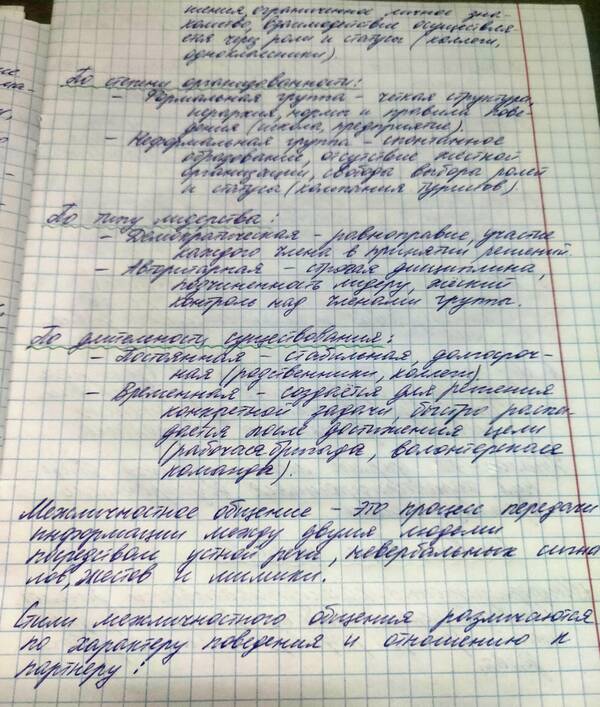 нения, ограниченное личное зна-
комство, взаимодействие осуществля
ется через роли и статусы (коллеги,
одноклассники).
По степени организованности:
- Формальная группа - чёткая структура,
иерархия, нормы и правила пове-
дения (школа, предприятие).
- Неформальная группа - спонтанное
образование, отсутствие жесткой
организации, свобода выбора ролей
и статуса (компания туристов).
По типу лидерства:
- Демократическая - равноправие, участие
каждого члена в принятии решений.
- Авторитарная - строгая дисциплина,
подчиненность лидеру, жесткий
контроль над членами группы.
По длительности существования:
- Постоянная - стабильная, долгосроч-
ная (родственники, коллеги)
- Временная - создаётся для решения
конкретной задачи, быстро распа-
дается после достижения цели
(рабочая бригада, волонтерская
команда).
Межличностное общение - это процесс передачи
информации между двумя людьми
посредством устной речи, невербальных сигна
лов, жестов и мимики.
Стили межличностного общения различаются
по характеру поведения и отношению к
партнеру: